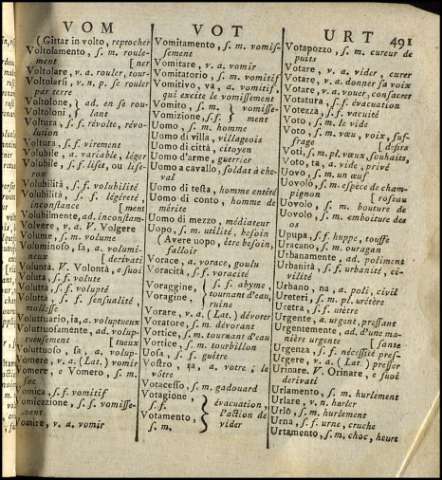 VOM
VOT
URT
491
(Gittar in volto, reprocher
Voltolamento, s. m. roule-
ment [ner
Voltolare, v. a. rouler, tour-
Voltolarsi v. n. p. se rouler
par terre
Voltolone, } ad. en se rou-
Voltoloni, } lant
Voltura, s. f. révolte, révo-
lution
Voltura, s. f. virement
Volubile, a. variable, léger
Volubile, s. f.
Volubilità, s. f. volubilité
Volubilità, s. f. légéreté,
inconstance
Volubilmente, ad. inconstam-
Volvere, v. a. V. Volgere
Volume, s. m. volume
Voluminoso, sa, a. volumi-
neux [derivati
Volunta. V. Volontà, e suoi
Voluta, s. f. volute
Volutta, s. f. volupté
Volutta, s. f. sensualité,
mollesse
Voluttuario, ia, a. voluptueux
Voluttuosamente, ad. volup-
tueusement [tueux
Voluttuoso, sa, a. volup-
Vomere, v. a. (Lat.) vomir
Vomere, e Vomero, s. m.
soc
Vomica, s. f. vomitif
Vomicazione, s. f. vomisse-
ment
Vomire, v. a. vomir
Vomitamento, s. m. vomis-
sement
Vomitare, v. a. vomir
Vomitatorio, s. m. vomitif
Vomitivo, va, a. vomitif,
qui excite le vomissement
Vomito, s. m. } vomisse-
Vomizione, s. f. } ment
Uomo, s. m. homme
Uomo di villa, villageois
Uomo di città, citoyen
Uomo d'arme, guerrier
Uomo a cavallo, soldat à che-
val
Uomo di testa, homme entêté
Uomo di conto, homme de
mérite
Uomo di mezzo, médiateur
Uopo, s. m. utilité, besoin
(Avere uopo, être besoin,
falloir
Vorace, a. vorace, goulu
Voracità, s. f. voracité
Voraggine, } s. f. abyme,
Voragine, } tournant d'eau,
ruine
Vorare, v. a. (Lat.) dévorer
Voratore, s. m. dévorant
Vortice, s. m. tournant d'eau
Vortice, s. m. tourbillon
Uosa, s. f. guêtre
Vostro, ra, a. votre; le
vôtre
Votacesso, s. m. gadouard
Votagione, s. f. } évacuation,
Votamento, } l'action de
s. m. } vider
Votapozzo, s. m. cureur de
puits
Votare, v. a. vider, curer
Votare, v. a. donner sa voix
Votare, v. a. vouer, consacrer
Votatura, s. f. évacuation
Votezza, s. f. vacuité
Voto, s. m. le vide
Voto, s. m. vœu, voix, suf-
frage [desirs
Voti, s. m. pl. vœux, souhaits,
Voto, ta, a. vide, privé
Uovo, s. m. un œuf
Uovolo, s. m. espece de cham-
pignon [roseau
Uovolo, s. m. bouture de
Uovolo, s. m. emboiture des
os
Upupa, s. f. huppe, touffe
Uracano, s. m. ouragan
Urbanamente, ad. poliment
Urbanità, s. f. urbanité, ci-
vilité
Urbano, na, a. poli, civil
Ureteri, s. m. pl. urètère
Uretra, s. f. urètre
Urgente, a. urgent, pressant
Urgentemente, ad. d'une ma-
nière urgente [sante
Urgenza, s. f. nécessité pres-
Urgere, v. a. (Lat.) presser
Urinare. V. Orinare, e suoi
derivati
Urlamento, s. m. hurlement
Urlare, v. n. hurler
Urlo, s. m. hurlement
Urna, s. f. urne, cruche
Urtamento, s. m. choc, heurt